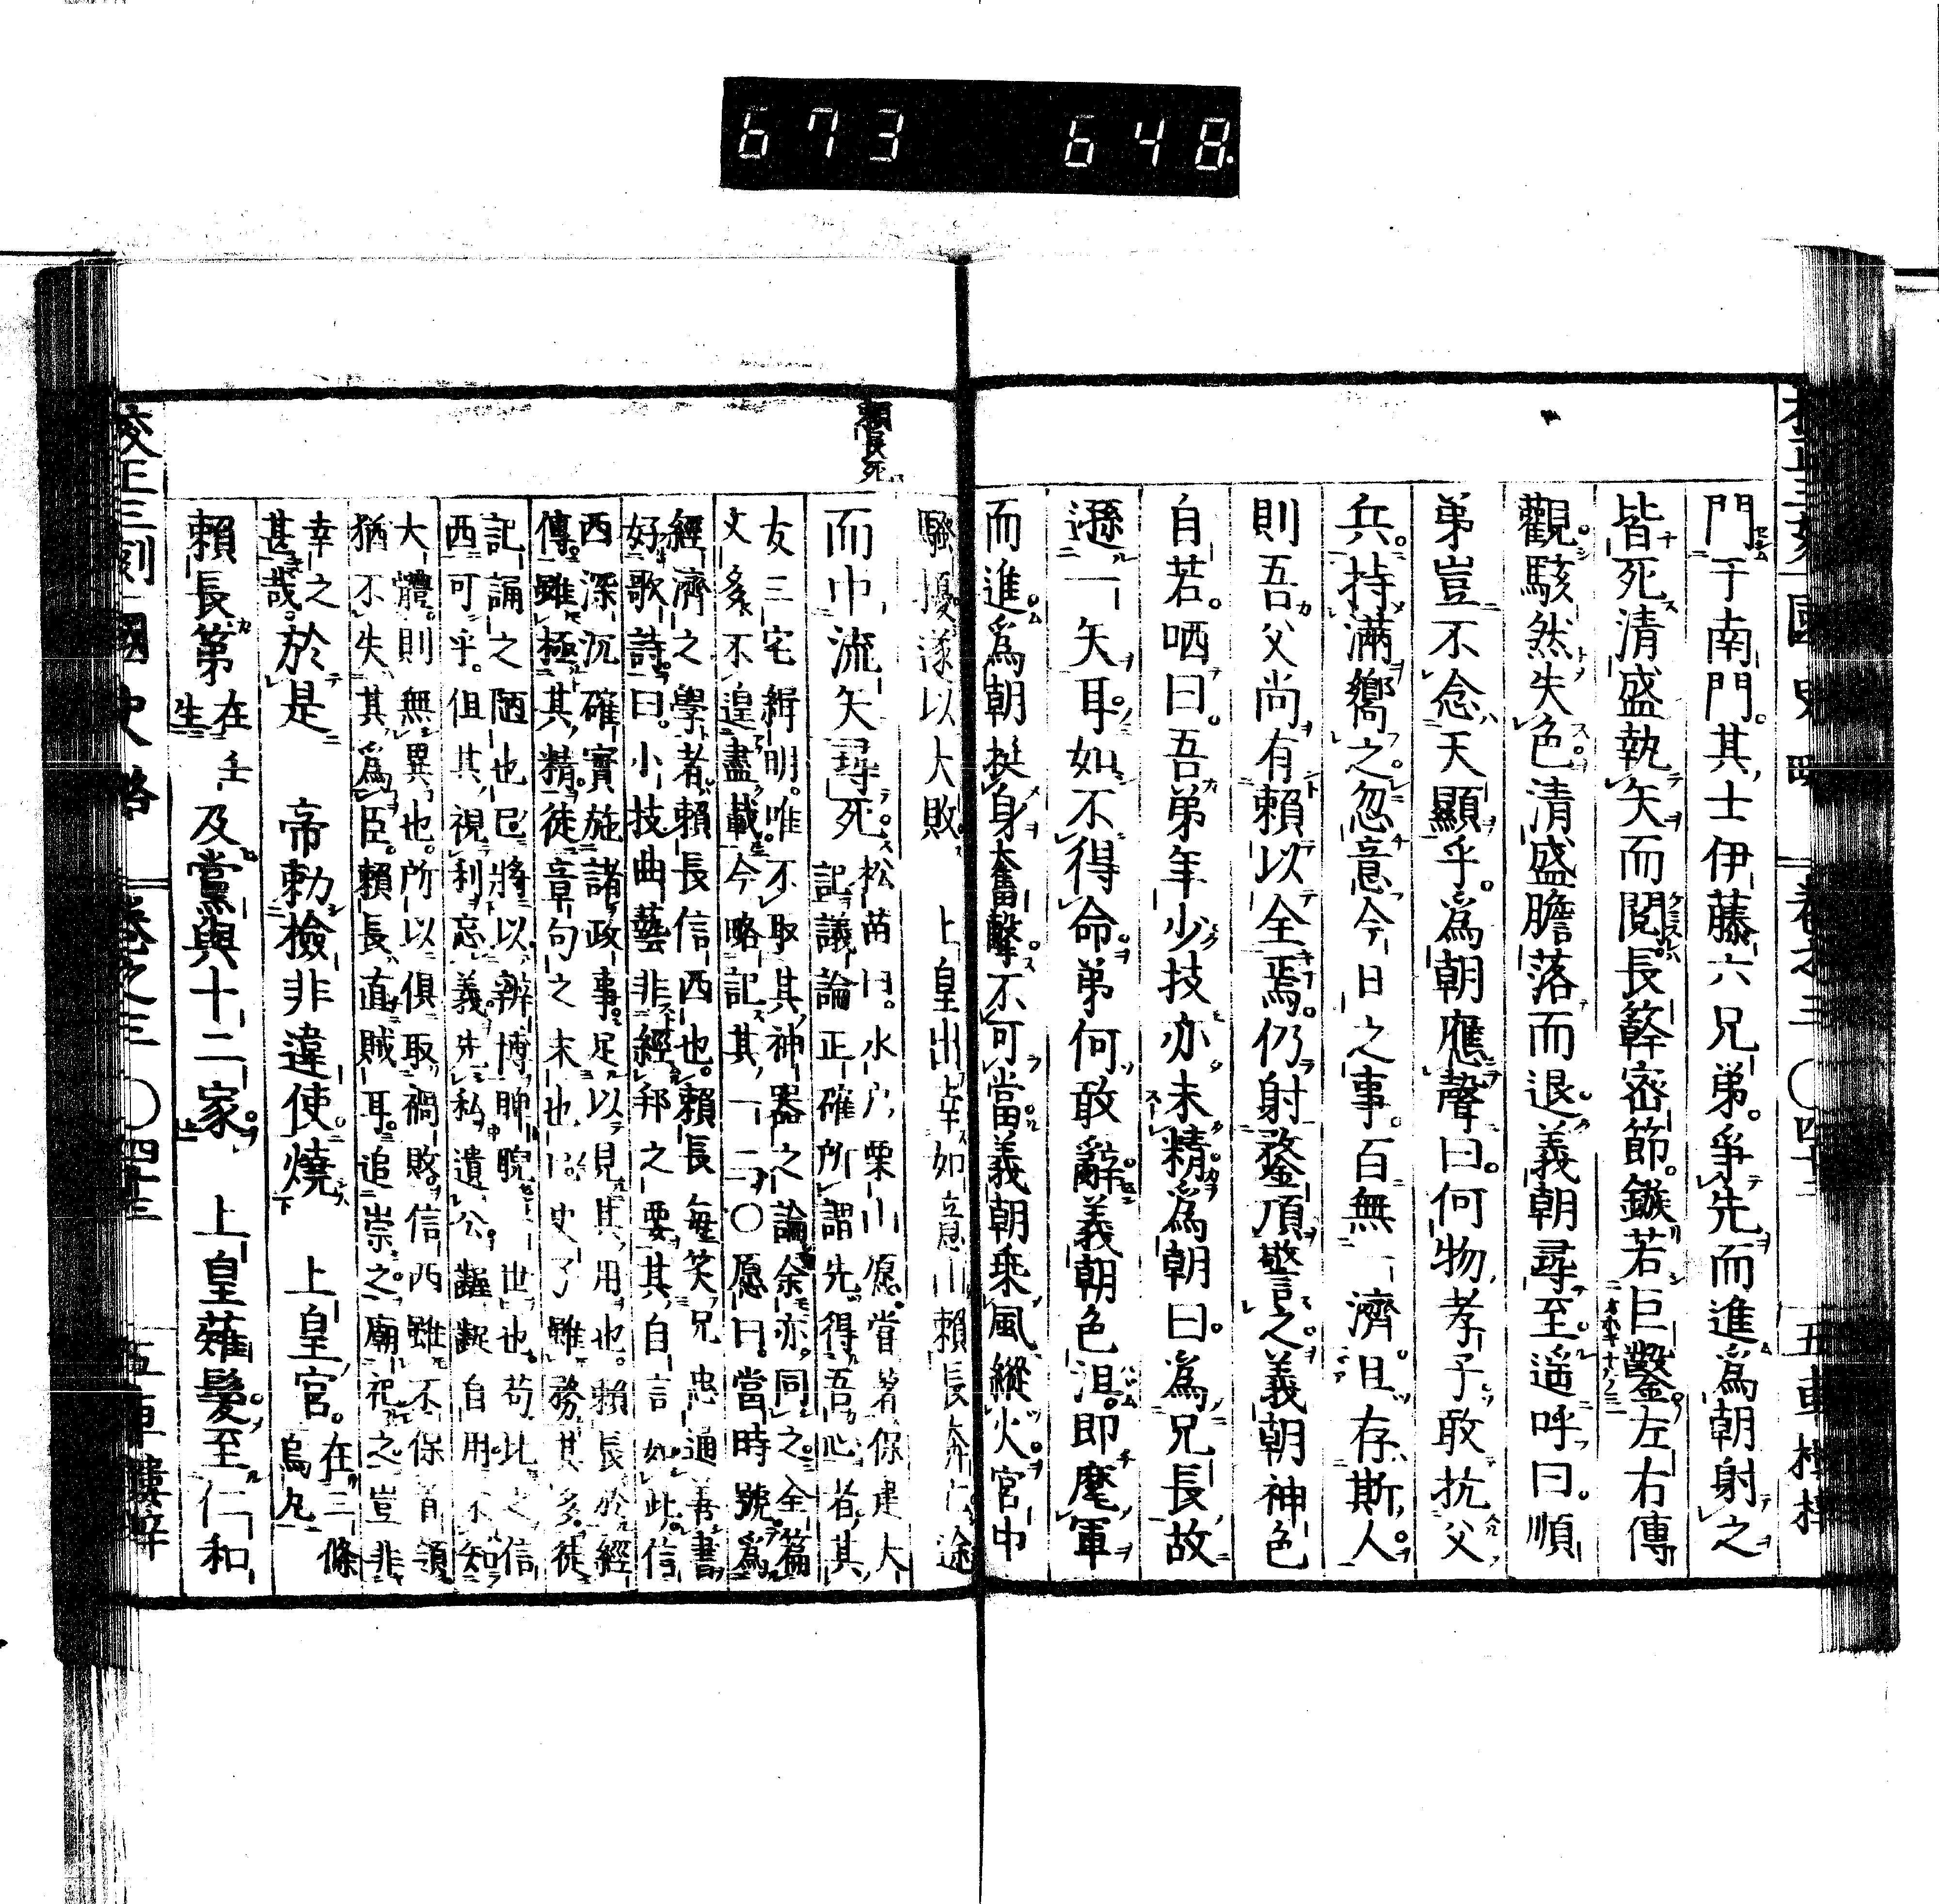 673 648.
門于南門。其士伊藤六兄弟。爭先而進爲朝射之
皆死清盛執矢而閱長簳密節。鏃若巨鑿。左右傳
觀駭然失色清盛膽落而退。義朝尋至遥呼曰。順
弟豈不念天顯乎。爲朝應聲曰。何物孝子敢抗父
兵。持滿嚮之。忽意今日之事。百無一濟。且存斯人。
則吾父尚有賴以全焉。仍射鍪頂警之。義朝神色
自若。哂曰。吾弟年少技亦未精。爲朝曰。爲兄長故
遜一矢耳。如不得命。弟何敢辭。義朝色沮。即麾軍
而進。爲朝挺身奮擊。不可當。義朝乘風縱火。宮中
騷擾遂以大敗。 上皇出 如意山賴長奔 途
而中流矢尋死 松苗曰。水戶栗山愿。嘗著保建大
記議論正確所謂先得吾心者。其
友三宅緝明。唯不取其神器之論余亦同之。全篇
文多不遑盡載。今略記其一二〇愿曰。當時號爲
經濟之學者。賴長信西也。賴長每笑兄忠通善書
好歌詩。曰。小技曲藝非經邦之要。其自言如此。信
西深沉確實施諸政事。足以見其用也。賴長於經
傳。雖極其精。徒章句之末也 史 雖務其多。徒
記誦之陋也。已將以辨博睥睨 世也。苟比之信
西可乎。但其視利忘義。先私遺公。 自用。不知
大體。則無異也。所以俱取禍敗。信西雖不保首領
猶不失其爲臣。賴長直賊耳。追崇之。廟祀之。豈非
幸之
甚哉。於是 帝勅檢非違使。燒 上皇宮。在三條
烏丸
賴長第 在壬
生 及黨與十二家。 上皇薙髮。至仁和
賴長死
校正三刻國史略 卷之三 〇四十三 五車樓梓